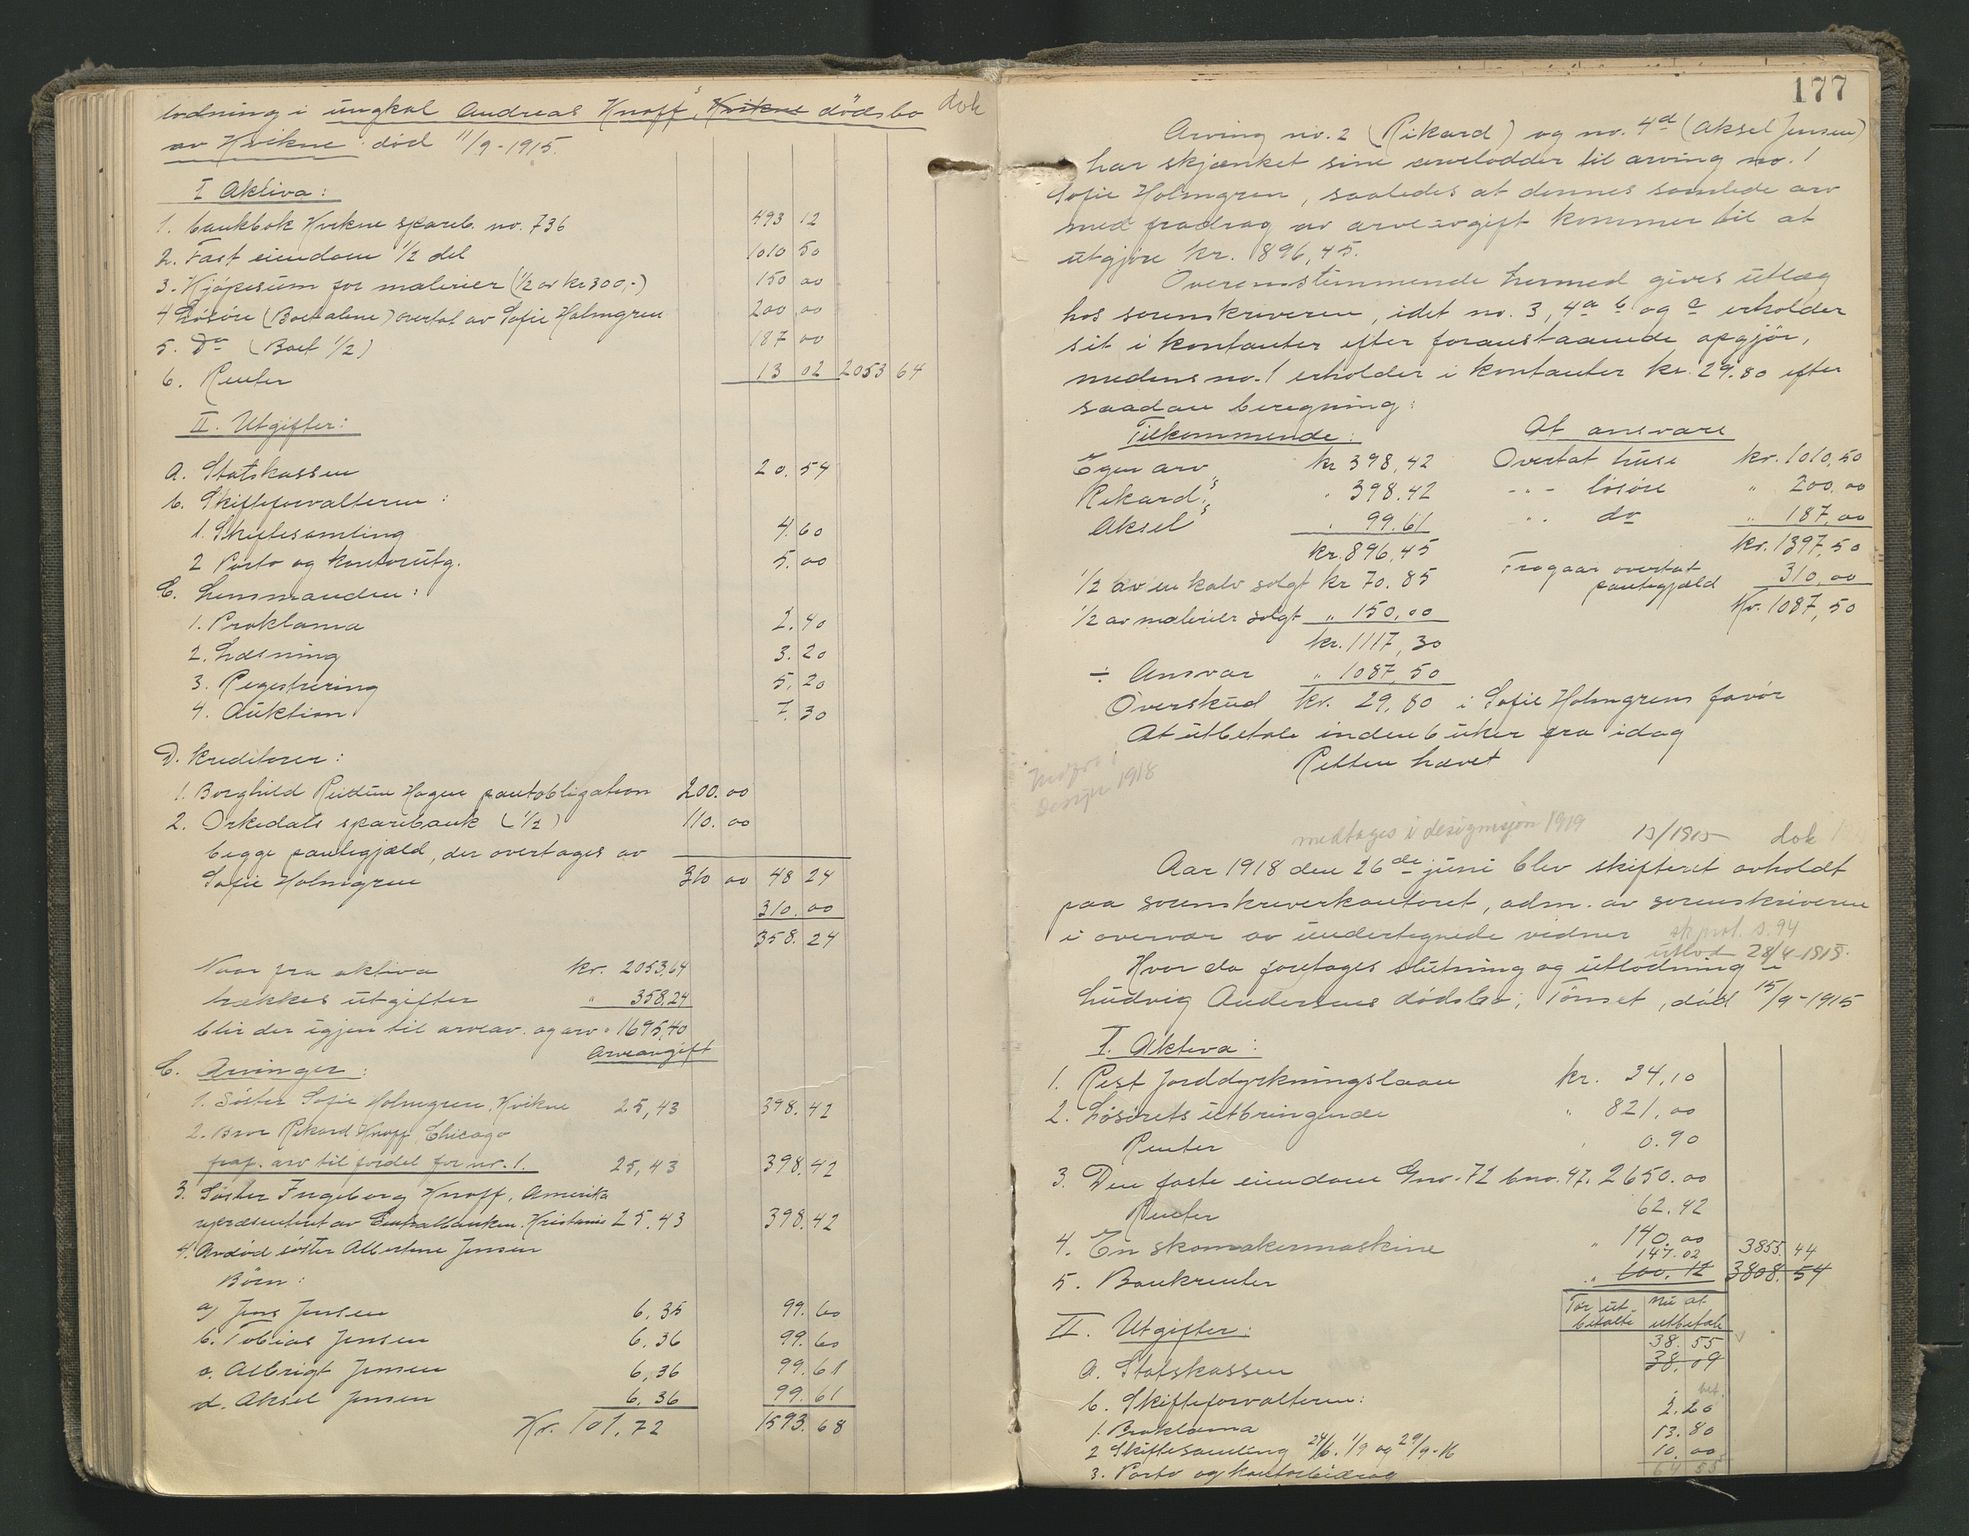 lodning i ungkal Andreas Knoff's Kvikne dødsbo dok
av Kvikne død 11/9-1915.
I Aktiva:
1. bankbok Kvikne spareb. no. 736 493 12
2. Fast eiendom 1/2 del 1010 50
3. Kjøpesum for materier (1/2 av kr 300,-) 150 00
4 Løsøre (Boet alene) overtat av Sofie Holmgren 200 00
5. Do (Boet 1/2) 187 00
6. Renter 13 02 2053 64
II. Utgifter:
a. Statskassen 20.54
b. Skifteforvalteren:
1. Skiftesamling 4.60
2 Porto og kontorutg. 5.00
C. Lensmanden:
1. Proklama 2.40
2. Læsning 3.20
3. Registrering 5.20
4. Auktion 7.30
D. Kreditorer:
1. Borghild Hagen pantobligation 200.00
2. Orkedals sparebank (1/2) 110.00
begge pantegjæld, der overtages av
Sofie Holmgren 310 00 48 24
310.00
358.24
Naar fra aktiva kr. 2053,64
trækkes utgifter " 358,24
blir der igjen til arveav. og arv " 1695,40
Arveavgift
C. Arvinger:
1. Søster Sofie Holmgren, Kvikne 25,43 398.42
2. Bror Rikard Knoff, Chicago
fraf. arv til fordel for no. 1. 25,43 398.42
3. Søster Ingeborg Knoff, Amerika
repræsentert av Centralbanken, Kristiania 25.43 398.42
4. Avdød søster Albertine Jensen
Børn:
a) Jens Jensen 6,35 99.60
b. Tobias Jensen 6,36 99.60
c. Albrigt Jensen 6,36 99.61
d. Aksel Jensen 6,36 99.61
Kr. 101,72 1593.68
177
Arving no. 2 (Rikard) og no. 4d (Aksel Jensen)
har skjænket sine arvelodder til arving no. 1
Sofie Holmgren, saaledes at dennes samlede arv
med fradrag av arveavgift kommer til at
utgjøre kr. 896,45.
Overensstemmende hermed gives utlæg
hos sorenskriveren, idet no. 3, 4a b og c erholder
sit i kontanter efter foranstaaende opgjør,
medens no. 1 erholder i kontanter kr. 29.80 efter
saadan beregning:
Tilkommende: At ansvare
Egen arv kr 398,42 Overtat huse kr. 1010,50
Rikard's " 398.42 - " - løsøre " 200.00
Aksel's " 99.61 " " do " 187,00
kr. 896,45 kr. 1397,50
1/2 av en kalv solgt kr 70.85 Fragaar overtat pantegjæld 310,00
1/2 av materier solgt " 150,00 Kr. 1087,50
kr. 1117,30
÷ Ansvar " 1087,50
Overskud kr. 29,80 i Sofie Holmgrens favør
At utbetale inden 6 uker fra idag
Retten hævet
Indført i
Design 1918
medtages i designasjon 1919 13/1915 dok
Aar 1918 den 26de juni blev skifteret avholdt
paa sorenskriverkontoret, adm. av sorenskriveren
i overvær av undertegnede vidner sk.prot. s. 94
utlod 28/4-1918.
Hvor da foretages slutning og utlodning i
Ludvig Andersens dødsbo, Tønset, død 15/9-1915
I. Aktiva:
1. Rest Jorddyrkningslaan kr. 34,10
2. Løsørets utbringende " 821,00
Renter " 0.90
3. Den faste eiendom Gno. 72 bno. 47. 2650.00
Renter 62.42
4. En skomakermaskine " 140.00
147.02 3855.44
5. Bankrenter " 100.12 3808.54
Før utbetalte Nu at utbetale
II. Utgifter:
38.55
a. Statskassen 38.09
b. Skifteforvalteren: bet.
1. Proklama 2.20
2 Skiftesamling 24/6. 1/9 og 29/9-16 13.80
3. Porto og kontorbidrag 10.00
64 55